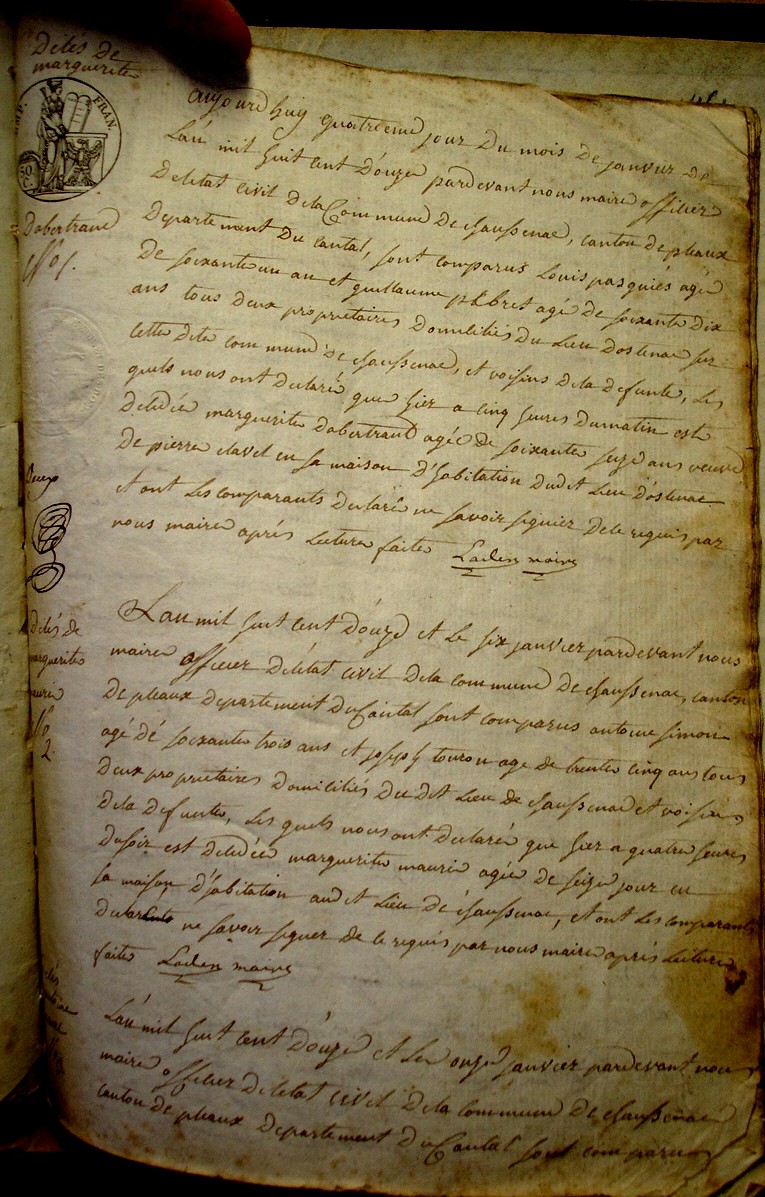 Délés de
marguerite
IMP. FRAN.
50
C.
Dabertrand
N° 1.
aujourdhuy quatrieme jour du mois de janvier de
Lan mil huit cent douze pardevant nous maire officier
deletat civil dela Commune de chaussenac, canton de pleaux
Departement du Cantal, sont comparus Louis pasquiés agé
de soixante un an et guillaume agé de soixante dix
ans tous deux proprietaires Domiciliés du Lieu dostenac sur
cette dite commune de chaussenac, et voisins dela defunte, Les
quels nous ont declaré que hier a cinq heures dumatin est
deledée marguerite dabertrand agée de soixante seize ans veuve
de pierre clavel en sa maison d'habitation dudit Lieu d'ostenac
et ont Les comparants declaré ne savoir signier dele requis par
nous maire aprés Lecture faite Laden maire
Deces
Délés de
marguerite
maurie
N°
2.
Lan mil huit cent douze et Le six janvier pardevant nous
maire officier deletat civil dela commune de chaussenac, canton
de pleaux departement du Cantal sont comparus antoine simon
agé de soixante trois ans et joseph touron age de trente cinq ans tous
deux proprietaires domiciliés du dit Lieu de chaussenac et voisins
dela defunte, Les quels nous ont declaré que hier a quatre heures
dusoir est deledée marguerite maurie agée de seize jour en
sa maison d'habitation audit Lieu de chaussenac, et ont Les comparants
declaré ne savoir signer de le requis par nous maire aprés Lecture
faite Laden maire
Lan mil huit cent douze et Le onze janvier pardevant nous
maire officier deletat civil dela commune de chaussenac
canton de pleaux departement du Cantal sont comparus